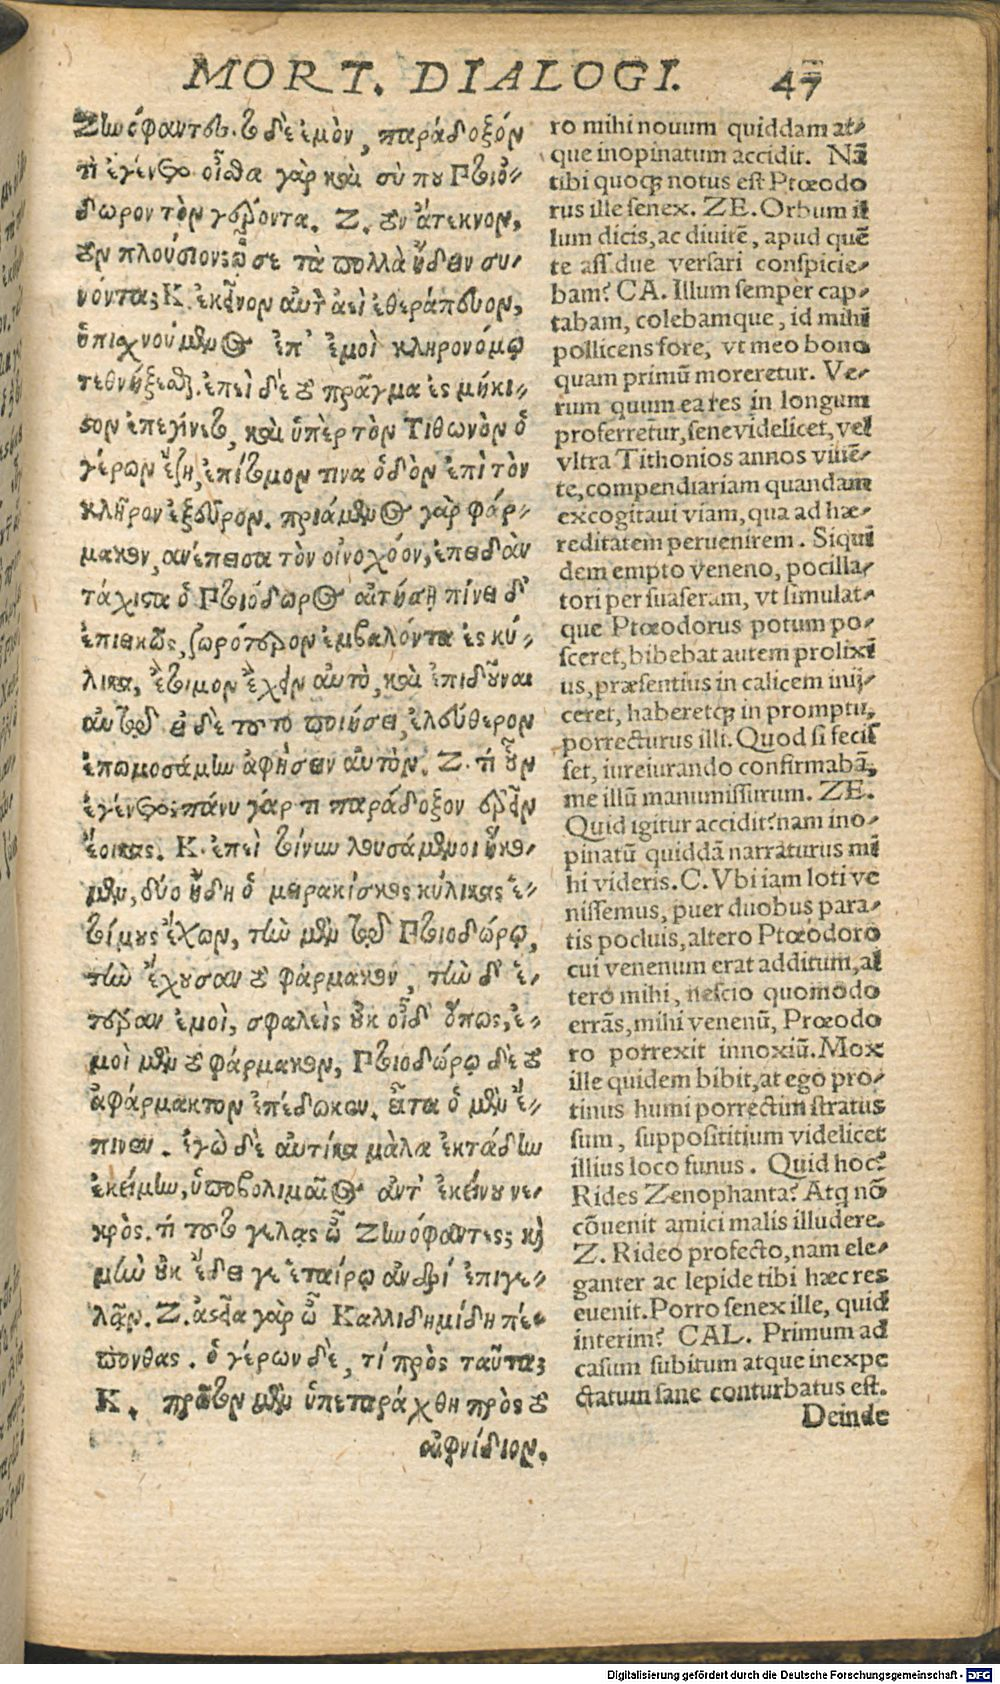 MORT. DIALOGI. 47
Ζηνόφαντε. τὸ δὲ ἐμὸν, παράδοξόν
τι ἐγένετο. οἶσθα γὰρ καὶ σὺ που Πτοιό-
δωρον τὸν γέροντα. Ζ. οὖν ἄτεκνον,
οὖν πλούσιον; ᾧ σε τὰ πολλὰ ᾔδειν συ-
νόντα; Κ. ἐκεῖνον αὐτὸν ἀεὶ ἐθεράπευον,
ὑπισχνούμενος ἐπ' ἐμοὶ κληρονόμῳ
τεθνήξεσθαι. ἐπεὶ δὲ τὸ πρᾶγμα ἐς μήκι-
στον ἐπεγίνετο, καὶ ὑπὲρ τὸν Τιθωνὸν ὁ
γέρων ἔζη, ἐπίτομόν τινα ὁδὸν ἐπὶ τὸν
κλῆρον ἐξεῦρον. πριάμενος γὰρ φάρ-
μακον, ἀνέπεισα τὸν οἰνοχόον, ἐπειδὰν
τάχιστα ὁ Πτοιόδωρος αἰτήσῃ πίνει δ'
ἐπιεικῶς, ζωρότερον ἐμβαλόντα ἐς κύ-
λικα, ἕτοιμον ἔχειν αὐτὸ, καὶ ἐπιδοῦναι
αὐτῷ. εἰ δὲ τοῦτο ποιήσει, ἐλεύθερον
ἐπωμοσάμην ἀφήσειν αὐτόν. Ζ. τί οὖν
ἐγένετο; πάνυ γάρ τι παράδοξον ἐρεῖν
ἔοικας. Κ. ἐπεὶ τοίνυν λουσάμενοι ἥκο-
μεν, δύο ἤδη ὁ μειρακίσκος κύλικας ἑ-
τοίμους ἔχων, τὴν μὲν τῷ Πτοιοδώρῳ,
τὴν ἔχουσαν τὸ φάρμακον, τὴν δ' ἑ-
τέραν ἐμοὶ, σφαλεὶς οὐκ οἶδ' ὅπως, ἐ-
μοὶ μὲν τὸ φάρμακον, Πτοιοδώρῳ δὲ τὸ
ἀφάρμακτον ἐπέδωκεν. εἶτα ὁ μὲν ἔ-
πινεν. ἐγὼ δὲ αὐτίκα μάλα ἐκτάδην
ἐκείμην, ὑποβολιμαῖος ἀντ' ἐκείνου νε-
κρὸς. τί τοῦτο γελᾷς ὦ Ζηνόφαντες; καὶ
μὴν οὐκ ἔδει γε ἑταίρῳ ἀνδρὶ ἐπιγε-
λᾷν. Ζ. ἀστεῖα γὰρ ὦ Καλλιδημίδη πέ-
πονθας. ὁ γέρων δὲ, τί πρὸς ταῦτα;
Κ. πρῶτον μὲν ὑπεταράχθη πρὸς τὸ
αἰφνίδιον.
ro mihi nouum quiddam at-
que inopinatum accidit. Nā
tibi quoq; notus est Ptœodo
rus ille senex. ZE. Orbum il
lum dicis, ac diuitē, apud quē
te assidue versari conspicie-
bam? CA. Illum semper cap-
tabam, colebamque, id mihi
pollicens fore, vt meo bono
quam primū moreretur. Ve-
rum quum ea res in longum
proferretur, sene videlicet, vel
vltra Tithonios annos viuē-
te, compendiariam quandam
excogitaui viam, qua ad hæ-
reditatem peruenirem. Siqui
dem empto veneno, pocilla-
tori persuaseram, vt simulat-
que Ptœodorus potum po-
sceret, bibebat autem prolixi
us, præsentius in calicem inij-
ceret, haberetq; in promptu,
porrecturus illi. Quod si fecis
set, iureiurando confirmabā,
me illū manumissurum. ZE.
Quid igitur accidit? nam ino-
pinatū quiddā narraturus mi
hi videris. C. Vbi iam loti ve
nissemus, puer duobus para-
tis pocluis, altero Ptœodoro
cui venenum erat additum, al
tero mihi, nescio quomodo
errās, mihi venenū, Prœodo
ro porrexit innoxiū. Mox
ille quidem bibit, at ego pro-
tinus humi porrectim stratus
sum, supposititium videlicet
illius loco funus. Quid hoc?
Rides Zenophanta? Atq nō
cōuenit amici malis illudere.
Z. Rideo profecto, nam ele-
ganter ac lepide tibi hæc res
euenit. Porro senex ille, quid
interim? CAL. Primum ad
casum subitum atque inexpe
ctatum sane conturbatus est.
Deinde
Digitalisierung gefördert durch die Deutsche Forschungsgemeinschaft - DFG